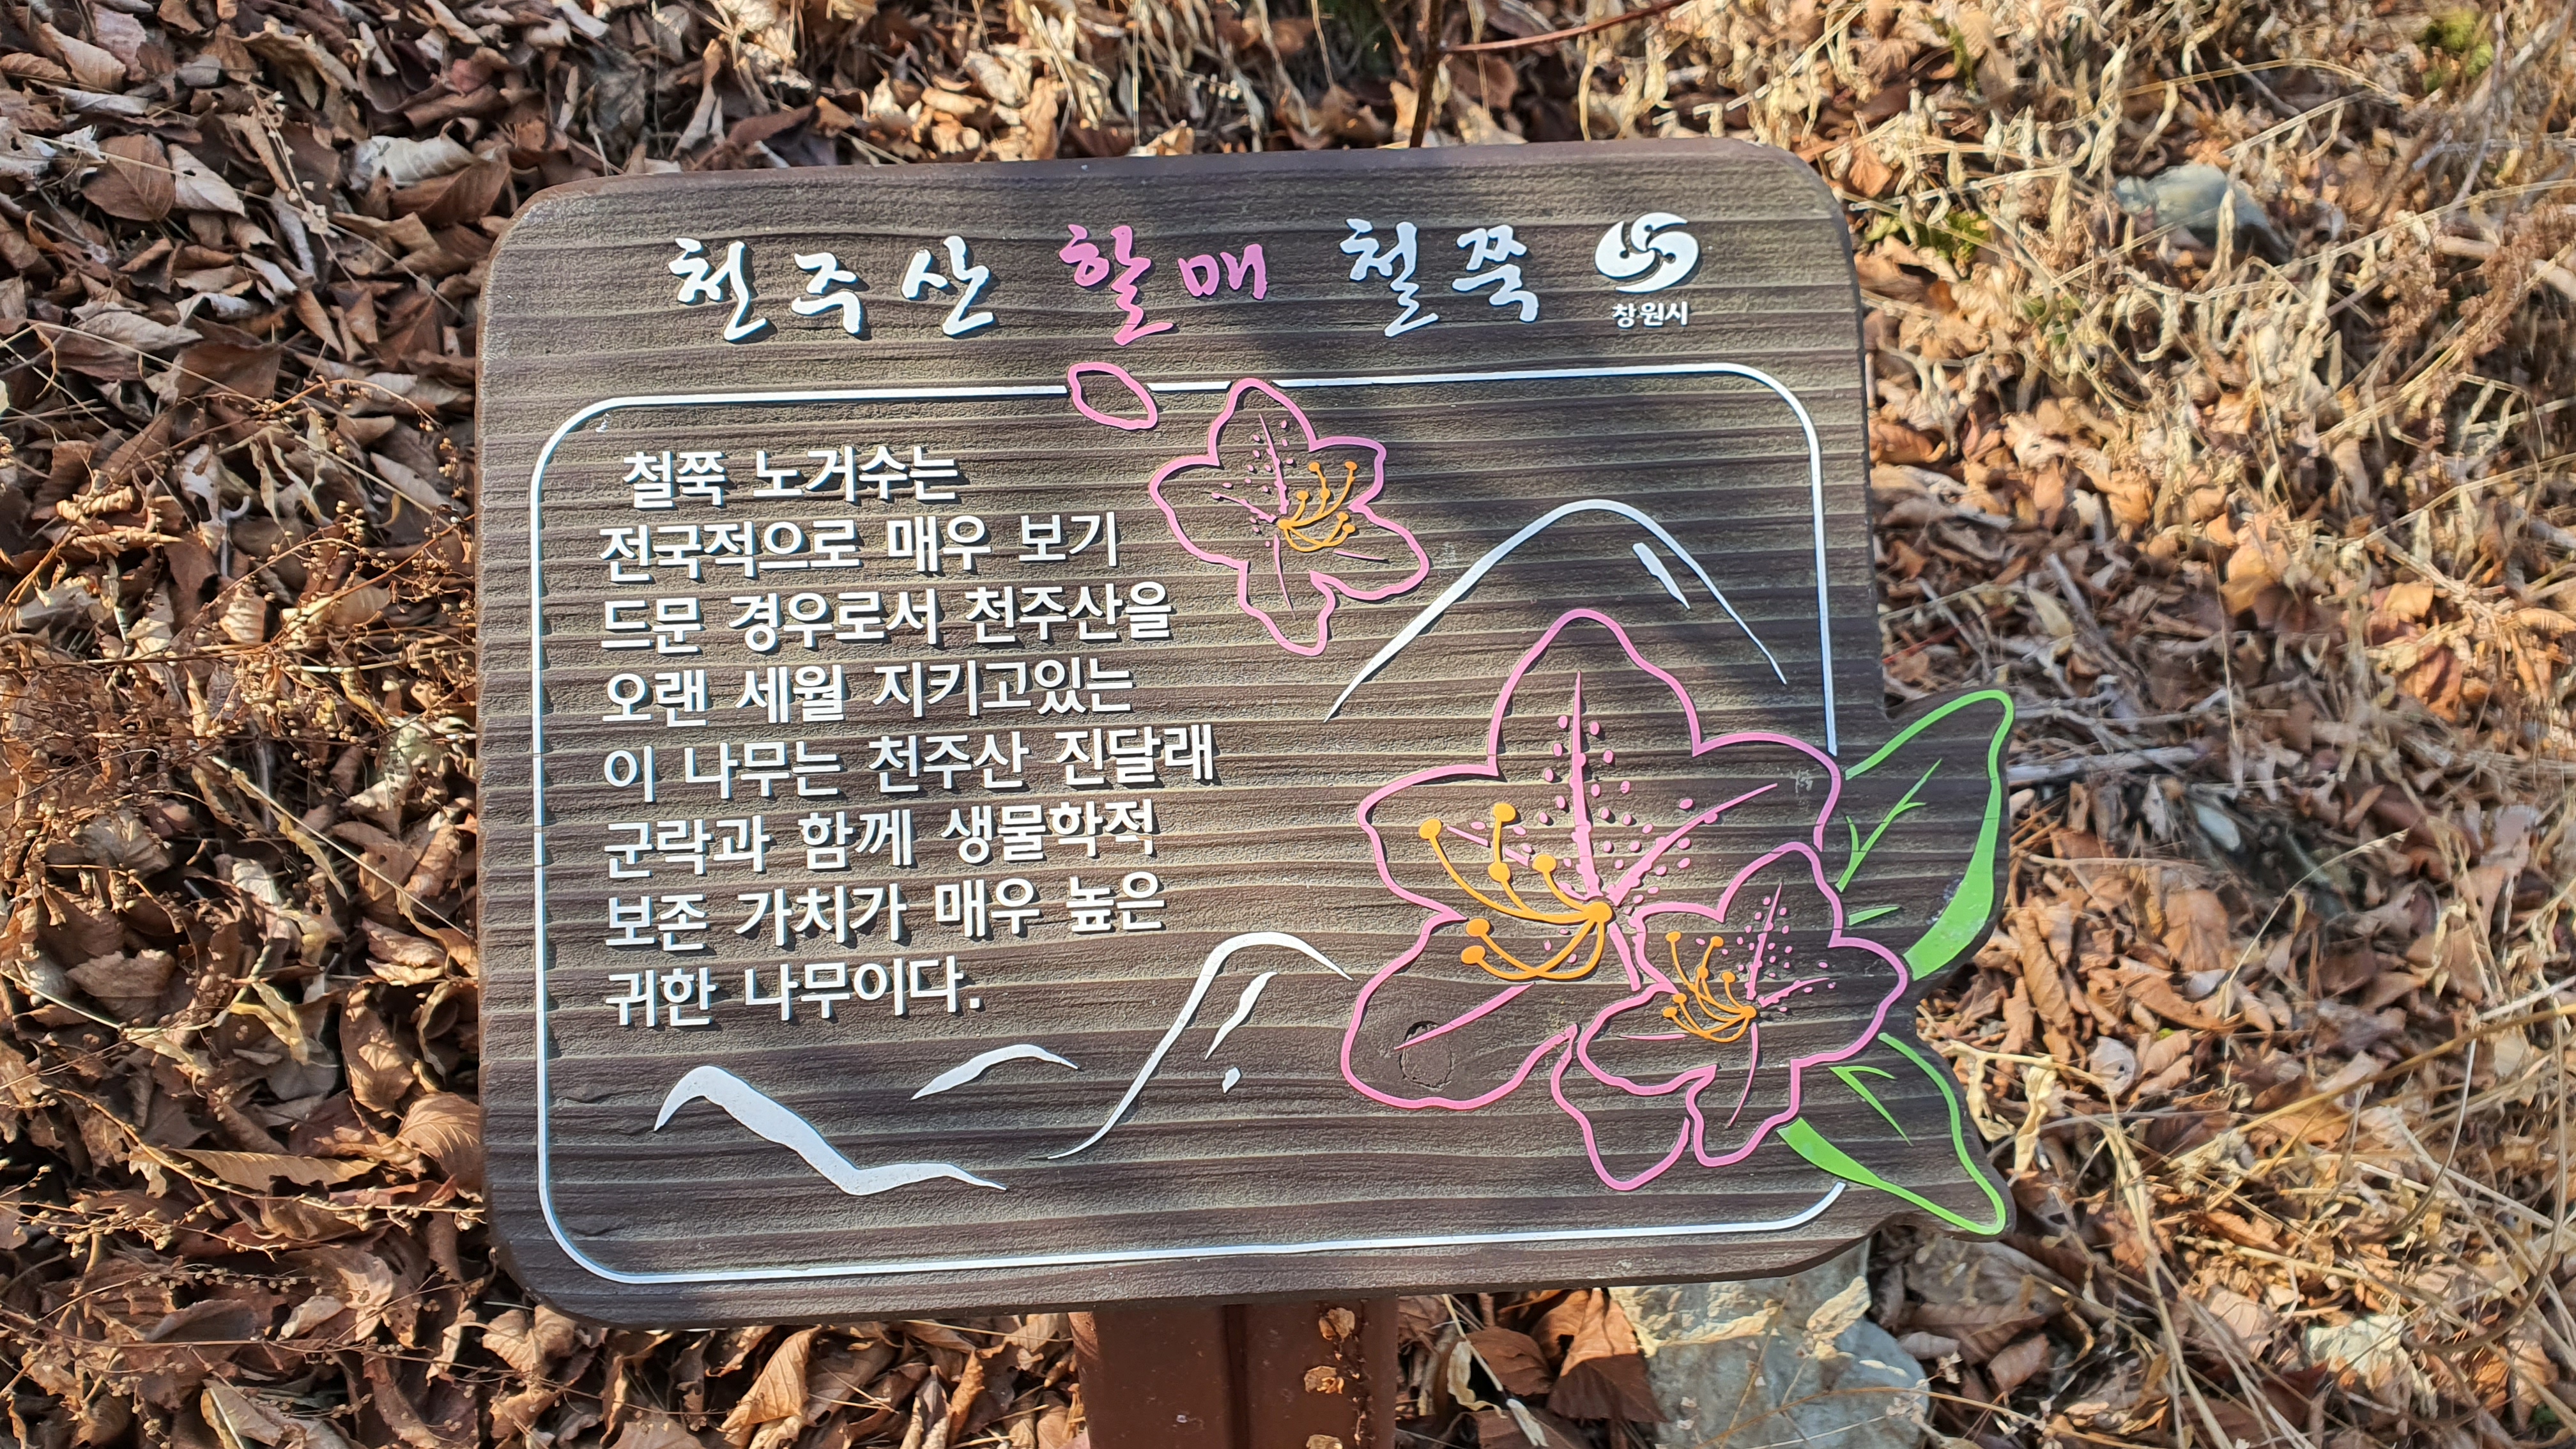 천주산 할매 철쭉
창원시
철쭉 노거수는
전국적으로 매우 보기
드문 경우로서 천주산을
오랜 세월 지키고있는
이 나무는 천주산 진달래
군락과 함께 생물학적
보존 가치가 매우 높은
귀한 나무이다.